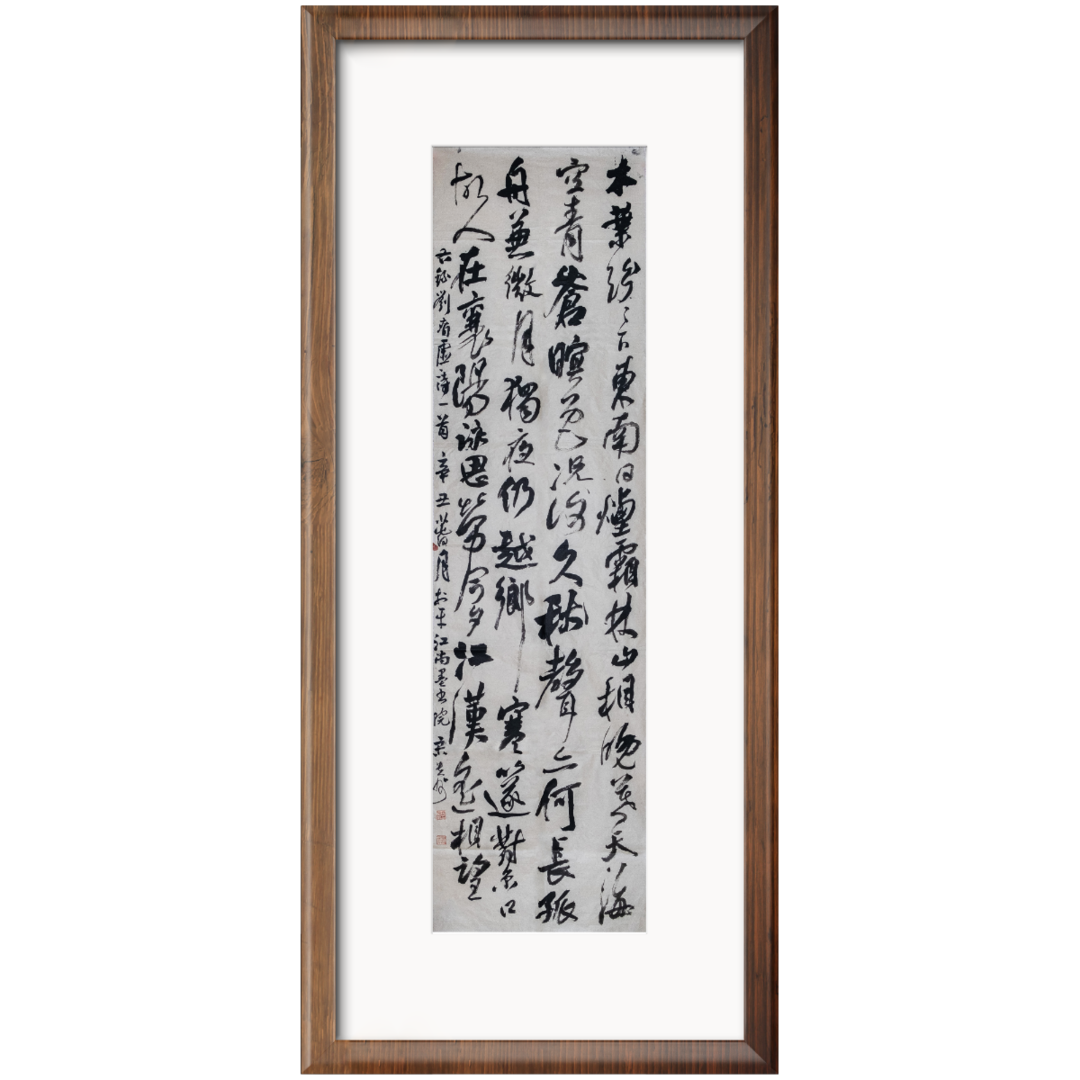 木葉紛〻下東南日煙霜林山相晚暮天海
空青蒼暝色況復久秋聲亦何長孤
舟兼微月獨夜仍越鄉寒篴對京口
故人在襄陽詠思勞今夕江漢遙相望
右錄劉眘虛詩一首辛丑月於平江尚墨書院